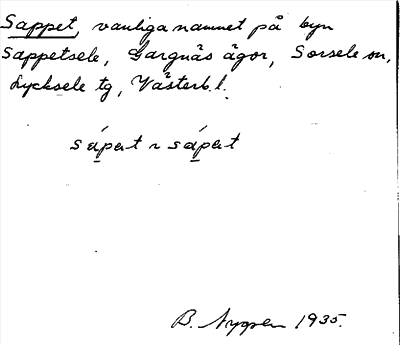 Sappet, vanliga namnet på byn
Sappetsele, Gargnäs ägor, Sorsele sn,
Lycksele tg, Västerb. l.
sápat ~ sápat
B. 1935.